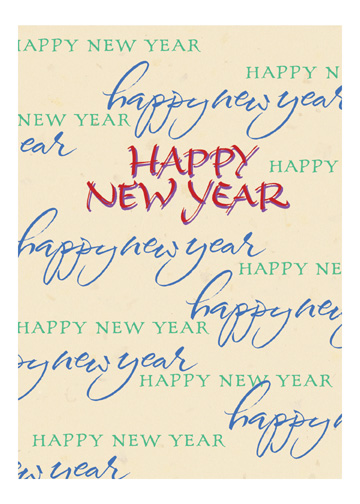 HAPPY NEW YEAR
HAPPY N
happy new year
NEW YEAR
ear
HAPPY
NEW YEAR
HAPPY
happy new year
HAPPY NE
happy ne
HAPPY NEW YEAR
py new year
HAPPY NEW YEAR
happy n
HAPPY NEW YEAR
w year